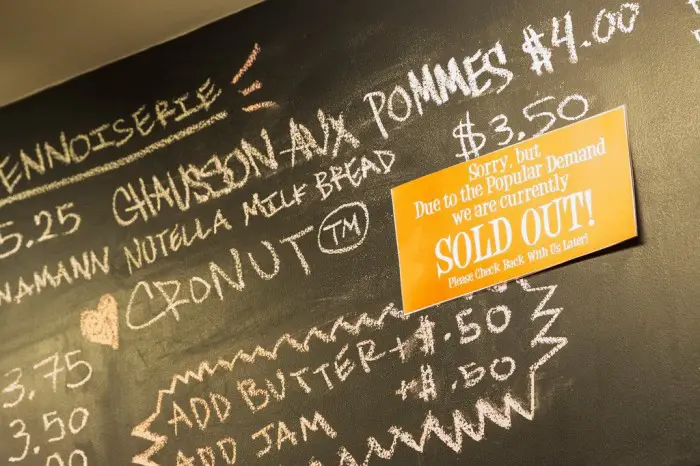 ENNOISERIE
5.25 CHAUSSON-AUX POMMES $4.00
NAMANN NUTELLA MILK BREAD $3.50
CRONUT TM
Sorry, but
Due to the Popular Demand
we are currently
SOLD OUT!
Please Check Back With Us Later!
3.75
3.50
ADD BUTTER +$.50
ADD JAM +$.50